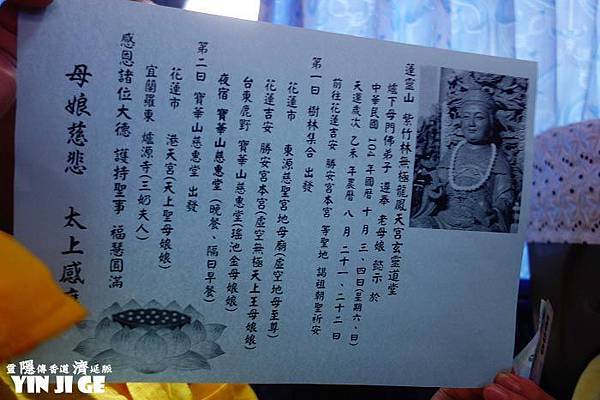 蓮靈山 紫竹林無極龍鳳天宮玄靈道堂
爐下母門佛弟子 遵奉 老母娘 懿示 於
中華民國 104 年國曆 十 月 三、四日(星期六、日)
天運歲次 乙未 年農曆 八 月 二十一、二十二 日
前往花蓮吉安 勝安宮本宮 等聖地 謁祖朝聖祈安
第一日 樹林集合 出發
花蓮市 東源慈聖宮地母廟(虛空地母至尊)
花蓮吉安 勝安宮本宮(虛空無極天上王母娘娘)
台東鹿野 寶華山慈惠堂(瑤池金母娘娘)
夜宿 寶華山慈惠堂 (晚餐、隔日早餐)
第二日 寶華山慈惠堂 出發
花蓮市 港天宮(天上聖母娘娘)
宜蘭羅東 爐源寺(三奶夫人)
感恩諸位大德 護持聖事 福慧圓滿
母娘慈悲 太上感
靈隱傳香道濟延脈
YIN JI GE